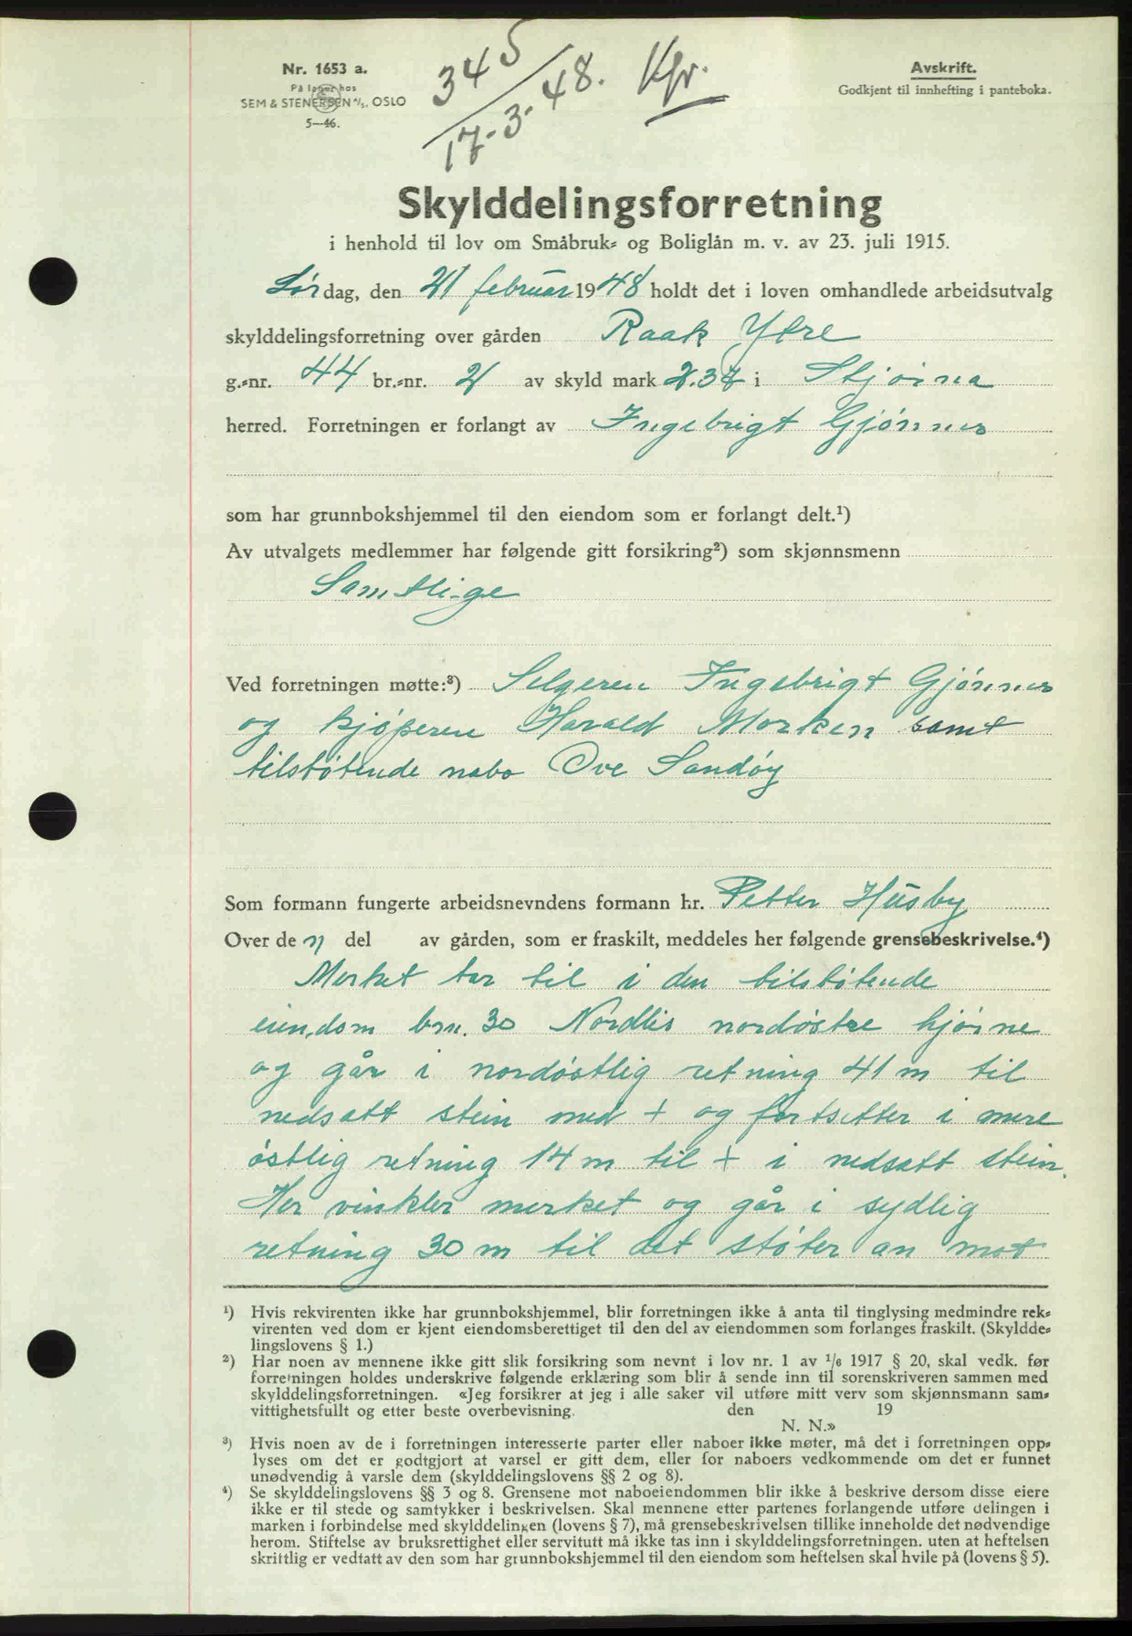 Nr. 1653 a.
På lager hos
SEM & STENERSEN A/S, OSLO
5—46.
345
17-3-48. Kfr.
Avskrift.
Godkjent til innhefting i panteboka.
Skylddelingsforretning
i henhold til lov om Småbruk- og Boliglån m. v. av 23. juli 1915.
Lørdag, den 21 februar 1948 holdt det i loven omhandlede arbeidsutvalg
skylddelingsforretning over gården Raak Ytre
g.-nr. 44 br.-nr. 2 av skyld mark 2.37 i Stjørna
herred. Forretningen er forlangt av Ingebrigt Gjønnes
som har grunnbokshjemmel til den eiendom som er forlangt delt.¹)
Av utvalgets medlemmer har følgende gitt forsikring²) som skjønnsmenn
Samtlige
Ved forretningen møtte:³) Selgeren Ingebrigt Gjønnes
og kjøperen Harald Morken samt
tilstøtende nabo Ove Sandøy
Som formann fungerte arbeidsnevndens formann hr. Petter Husby
Over de n del av gården, som er fraskilt, meddeles her følgende grensebeskrivelse.⁴)
Merket tar til i den tilstøtende
eiendom brn. 30 Nordlis nordøstre hjørne
og går i nordøstlig retning 41 m til
nedsatt stein med + og fortsetter i mere
østlig retning 14 m til + i nedsatt stein.
Her vinkler merket og går i sydlig
retning 30 m til det støter an mot
¹) Hvis rekvirenten ikke har grunnbokshjemmel, blir forretningen ikke å anta til tinglysing medmindre rek-
virenten ved dom er kjent eiendomsberettiget til den del av eiendommen som forlanges fraskilt. (Skyldde-
lingslovens § 1.)
²) Har noen av mennene ikke gitt slik forsikring som nevnt i lov nr. 1 av 1/6 1917 § 20, skal vedk. før
forretningen holdes underskrive følgende erklæring som blir å sende inn til sorenskriveren sammen med
skylddelingsforretningen. «Jeg forsikrer at jeg i alle saker vil utføre mitt verv som skjønnsmann sam-
vittighetsfullt og etter beste overbevisning. den 19
N. N.»
³) Hvis noen av de i forretningen interesserte parter eller naboer ikke møter, må det i forretningen opp-
lyses om det er godtgjort at varsel er gitt dem, eller for naboers vedkommende om det er funnet
unødvendig å varsle dem (skylddelingslovens §§ 2 og 8).
⁴) Se skylddelingslovens §§ 3 og 8. Grensene mot naboeiendommen blir ikke å beskrive dersom disse eiere
ikke er til stede og samtykker i beskrivelsen. Skal mennene etter partenes forlangende utføre delingen i
marken i forbindelse med skylddelingen (lovens § 7), må grensebeskrivelsen tillike inneholde det nødvendige
herom. Stiftelse av bruksrettighet eller servitutt må ikke tas inn i skylddelingsforretningen, uten at heftelsen
skriftlig er vedtatt av den som har grunnbokshjemmel til den eiendom som heftelsen skal hvile på (lovens § 5).